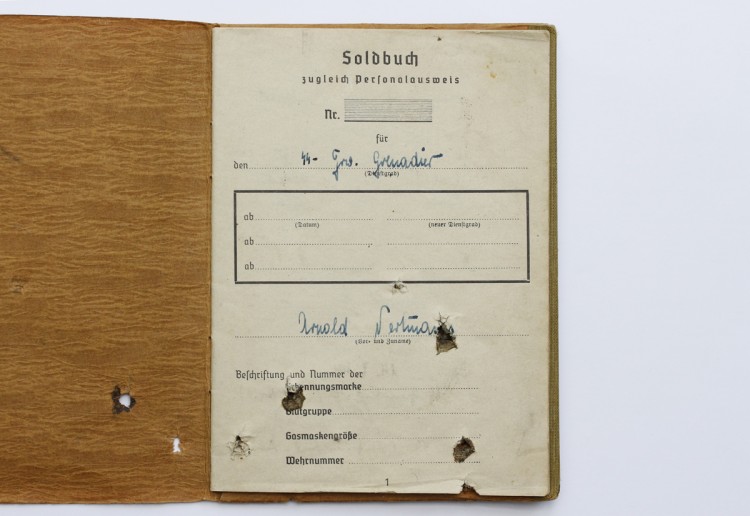 Soldbuch
zugleich Personalausweis
Nr.
für
den ᛋᛋ- Frw. Grenadier
(Dienstgrad)
ab
(Datum) (neuer Dienstgrad)
ab
ab
Arnold
(Vor- und Zuname)
Beschriftung und Nummer der
Erkennungsmarke
Blutgruppe
Gasmaskengröße
Wehrnummer
1